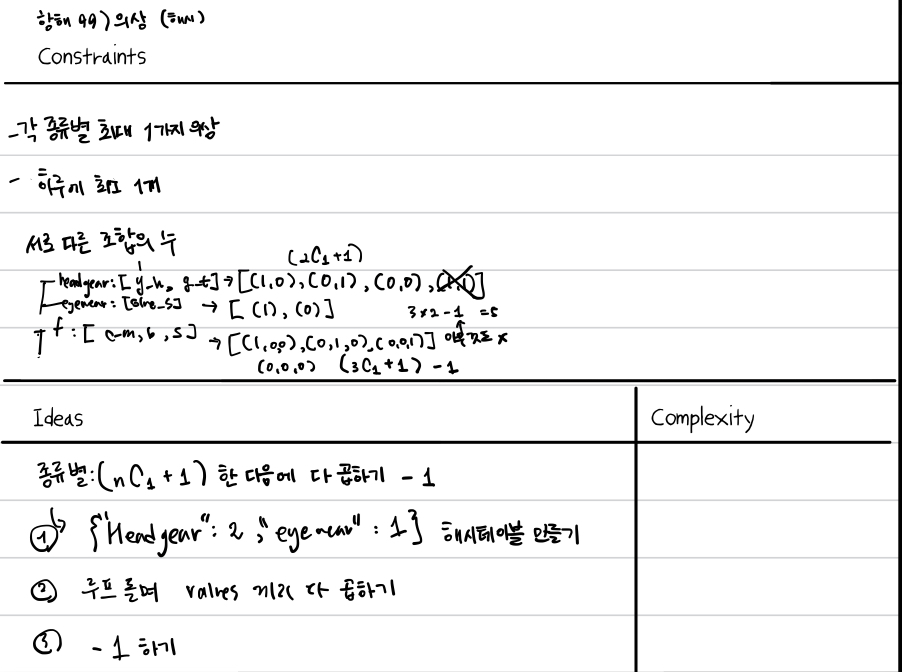 항해 99) 의상 (해시)
Constraints
- 각 종류별 최대 1가지 의상
- 하루에 최소 1개
서로 다른 조합의 수
(2C₁+1)
headgear: [y_h, g_t] → [(1,0), (0,1), (0,0), (1,1)]
eyewear: [blue_s] → [(1), (0)] 3×2-1 =5
f: [c-m, b, s] → [(1,0,0), (0,1,0), (0,0,1)] x
(0,0,0) (3C₁+1) -1
Ideas
Complexity
종류별: (nC₁+1) 한 다음에 다 곱하기 -1
① {"Headgear": 2, "eyewear": 1} 해시테이블 만들기
② 루프 돌며 values 끼리 다 곱하기
③ -1 하기